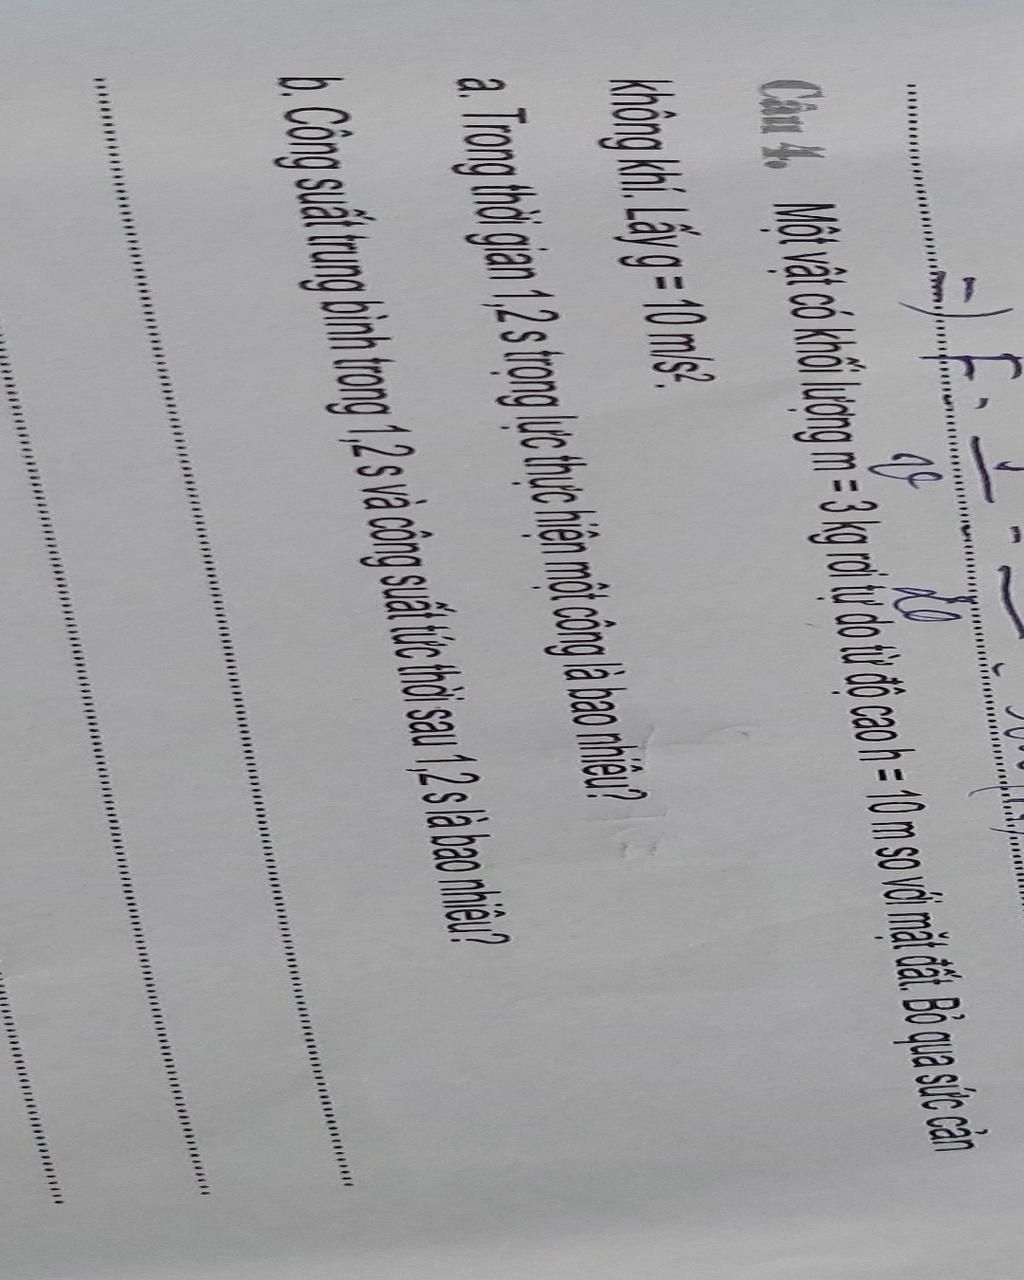 Câu 4. Một vật có khối lượng m = 3 kg rơi tự do từ độ cao h = 10 m so với mặt đất. Bỏ qua sức cản
không khí. Lấy g = 10 m/s².
a. Trong thời gian 1,2 s trọng lực thực hiện một công là bao nhiêu?
b. Công suất trung bình trong 1,2 s và công suất tức thời sau 1,2 s là bao nhiêu?